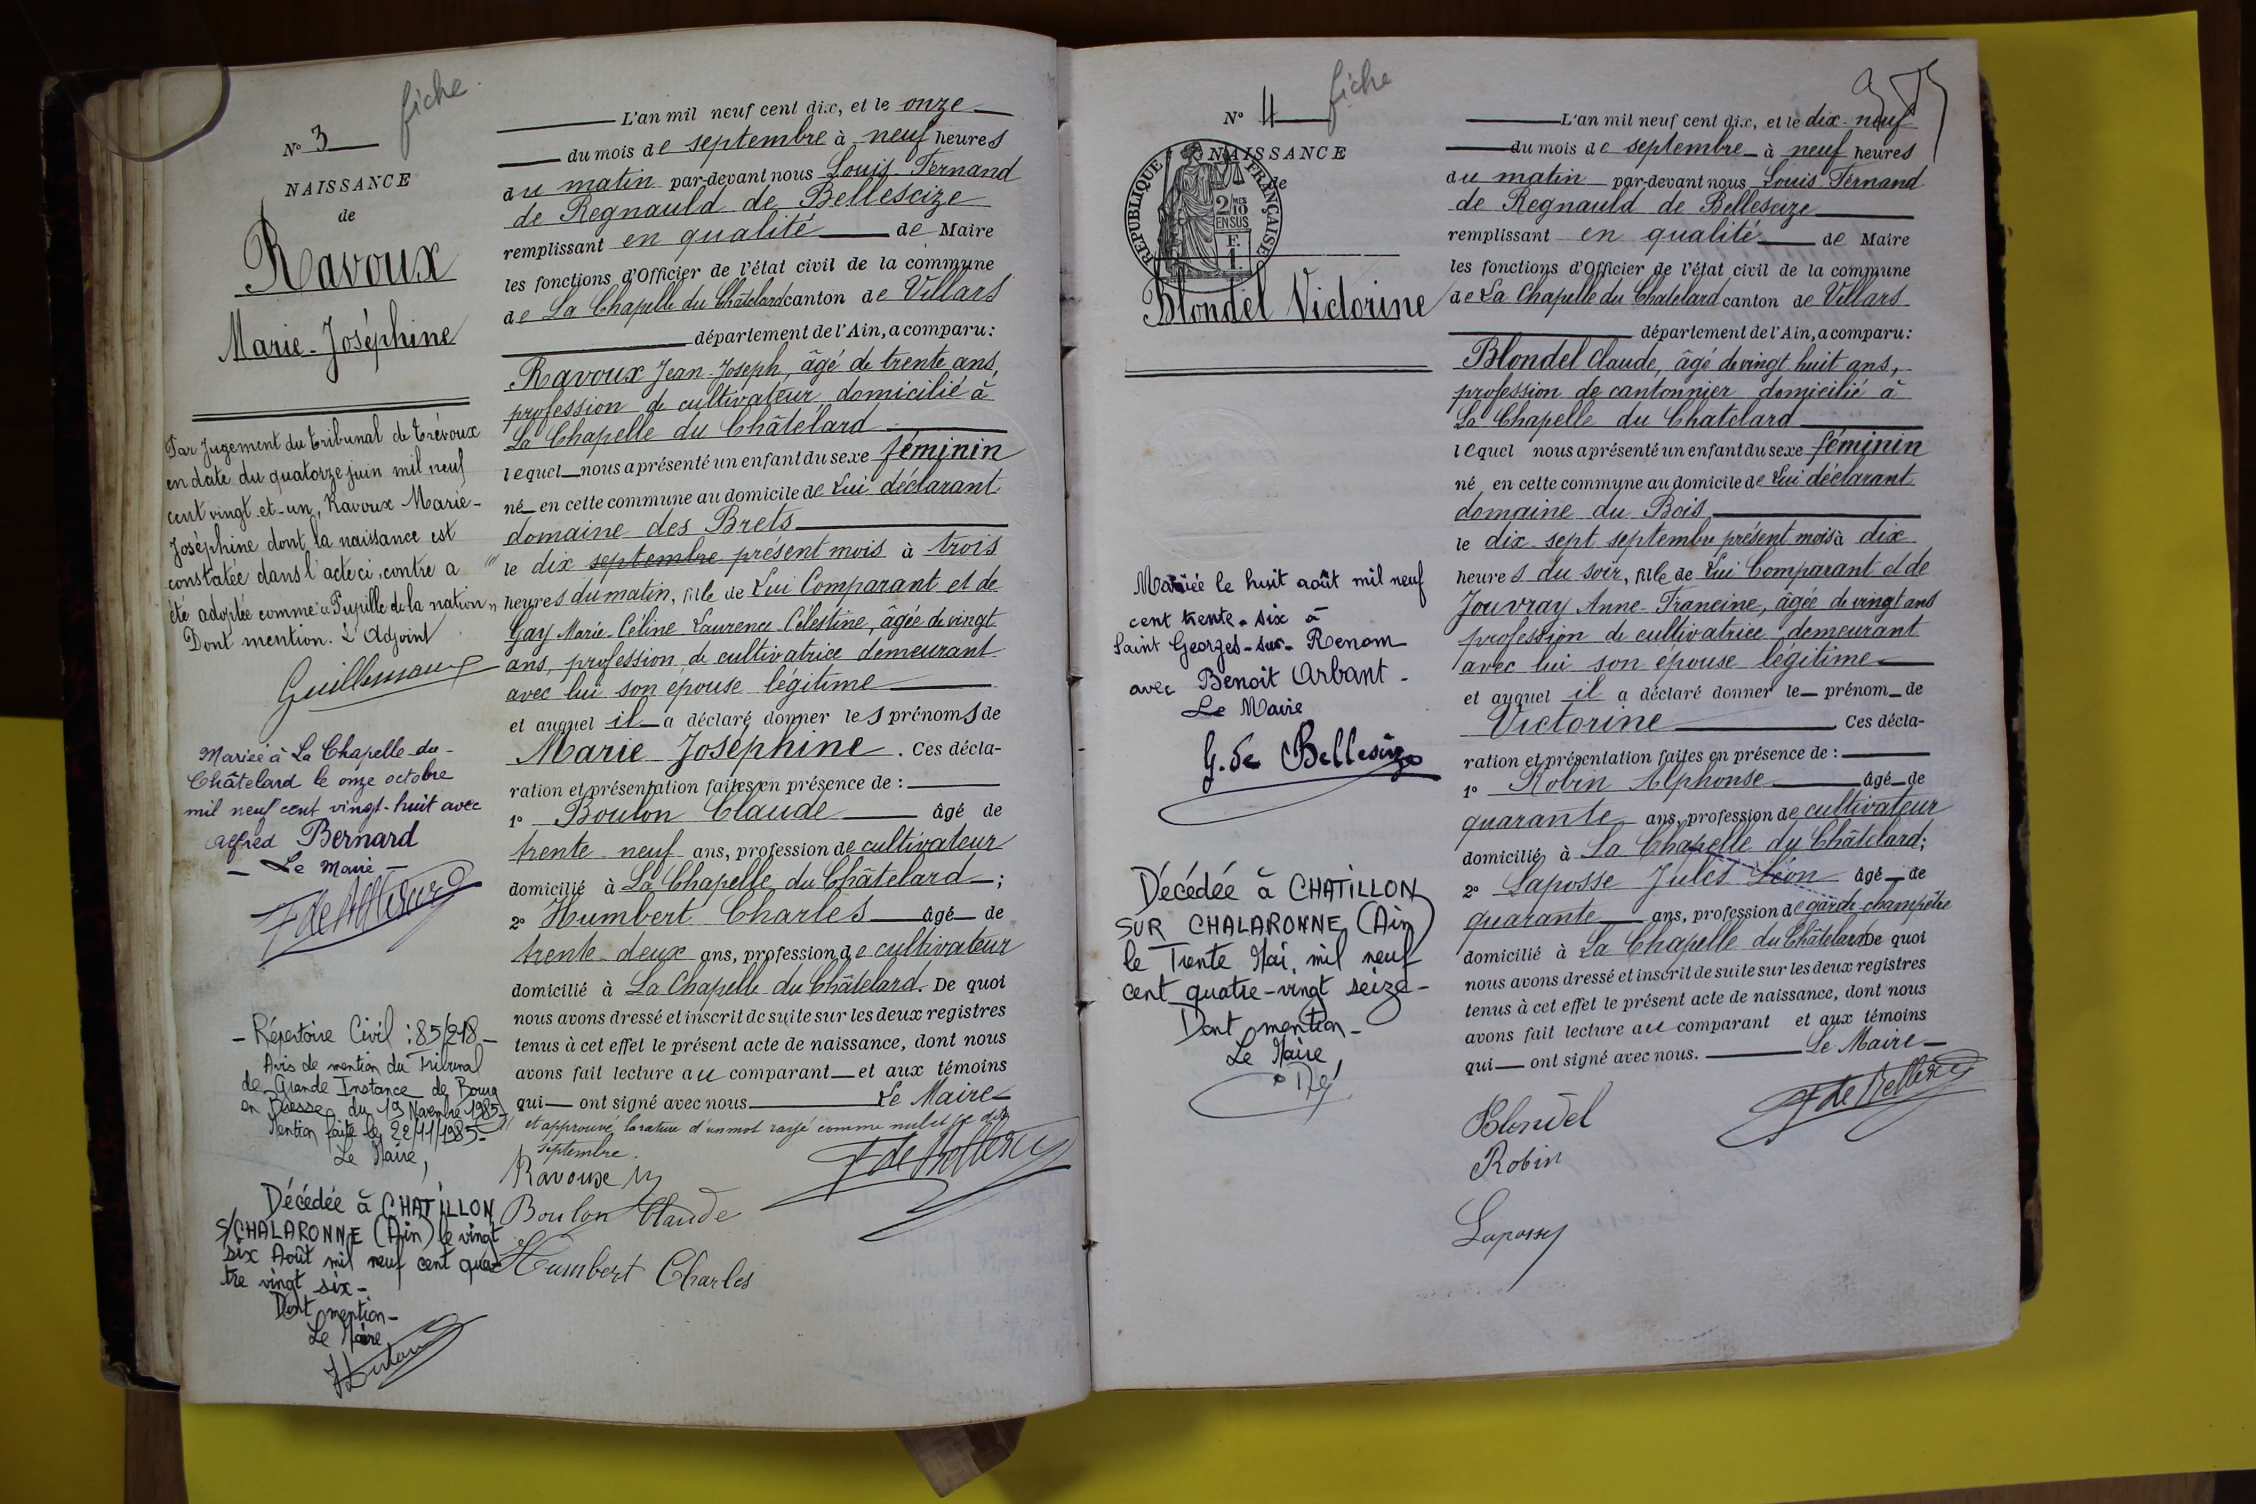 fiche
N° 3
NAISSANCE
de
Ravoux
Marie-Joséphine
Par Jugement du tribunal de Trévoux
en date du quatorze juin mil neuf
cent vingt-et-un, Ravoux Marie-
Joséphine dont la naissance est
constatée dans l'acte ci-contre a
été adoptée comme "Pupille de la nation"
Dont mention. L'Adjoint
Mariée à La Chapelle-du-
Châtelard le onze octobre
mil neuf cent vingt-huit avec
Alfred Bernard
- Le Maire -
- Répertoire Civil : 85/218 -
Avis de mention du Tribunal
de Grande Instance de Bourg
en Bresse du 19 Novembre 1985-
Mention faite le 22/11/1985-
Le Maire,
Décédée à CHATILLON
S/CHALARONNE (Ain) le vingt
six Août mil neuf cent qua-
tre vingt six-
Dont mention-
Le Maire
L'an mil neuf cent dix, et le onze
du mois de septembre à neuf heures
du matin par-devant nous Louis Fernand
de Regnauld de Bellescize
remplissant en qualité de Maire
les fonctions d'Officier de l'état civil de la commune
de La Chapelle du Châtelard canton de Villars
département de l'Ain, a comparu :
Ravoux Jean-Joseph, âgé de trente ans,
profession de cultivateur domicilié à
La Chapelle du Châtelard
lequel nous a présenté un enfant du sexe féminin
né en cette commune au domicile de Lui déclarant
domaine des Brets
le dix septembre présent mois à trois
heures du matin, fille de Lui Comparant et de
Gay Marie-Céline Laurence Célestine, âgée de vingt
ans, profession de cultivatrice demeurant
avec lui son épouse légitime
et auquel il a déclaré donner les prénoms de
Marie Joséphine. Ces décla-
ration et présentation faites en présence de :
1° Boulon Claude âgé de
trente neuf ans, profession de cultivateur
domicilié à La Chapelle du Châtelard ;
2° Humbert Charles âgé de
trente-deux ans, profession de cultivateur
domicilié à La Chapelle du Châtelard. De quoi
nous avons dressé et inscrit de suite sur les deux registres
tenus à cet effet le présent acte de naissance, dont nous
avons fait lecture au comparant et aux témoins
qui ont signé avec nous Le Maire
et approuvé la rature d'un mot rayé comme nul
septembre.
Ravoux
Boulon Claude
Humbert Charles
fiche
N° 4
NAISSANCE
de
REPUBLIQUE FRANÇAISE
2/10
MES
EN SUS
F.
1.
Blondel Victorine
Mariée le huit août mil neuf
cent trente-six à
Saint Georges-sur-Renom
avec Benoit Arbant-
Le Maire
G. de Bellescize
Décédée à CHATILLON
SUR CHALARONNE (Ain)
le Trente Mai, mil neuf
cent quatre-vingt seize-
Dont mention-
Le Maire,
L'an mil neuf cent dix, et le dix-neuf
du mois de septembre à neuf heures
du matin par-devant nous Louis Fernand
de Regnauld de Bellescize
remplissant en qualité de Maire
les fonctions d'Officier de l'état civil de la commune
de La Chapelle du Chatelard canton de Villars
département de l'Ain, a comparu :
Blondel Claude, âgé de vingt huit ans,
profession de cantonnier domicilié à
La Chapelle du Chatelard
lequel nous a présenté un enfant du sexe féminin
né en cette commune au domicile de Lui déclarant
domaine du Bois
le dix-sept septembre présent mois à dix
heures du soir, fille de Lui Comparant et de
Jouvray Anne-Francine, âgée de vingt ans
profession de cultivatrice demeurant
avec lui son épouse légitime
et auquel il a déclaré donner le prénom de
Victorine Ces décla-
ration et présentation faites en présence de :
1° Robin Alphonse âgé de
quarante ans, profession de cultivateur
domicilié à La Chapelle du Châtelard ;
2° Laposse Jules Léon âgé de
quarante ans, profession de garde-champêtre
domicilié à La Chapelle du Châtelard De quoi
nous avons dressé et inscrit de suite sur les deux registres
tenus à cet effet le présent acte de naissance, dont nous
avons fait lecture au comparant et aux témoins
qui ont signé avec nous. Le Maire
Blondel
Robin